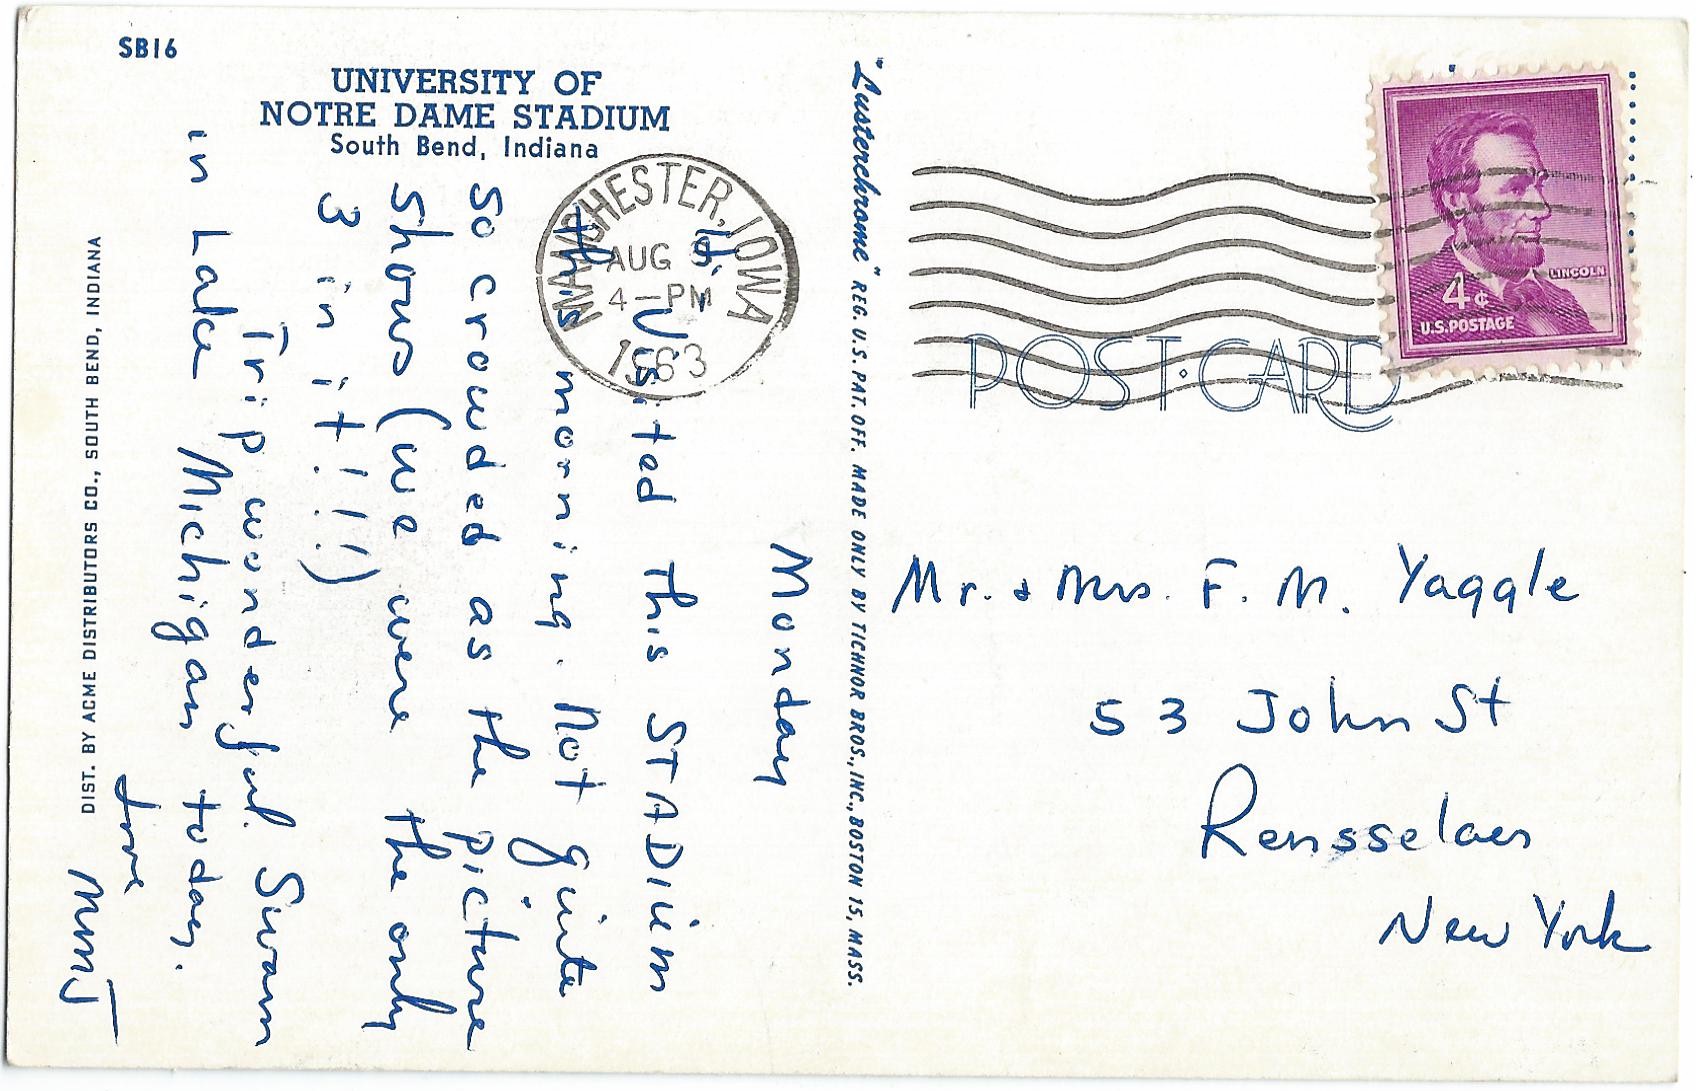 SB16
UNIVERSITY OF
NOTRE DAME STADIUM
South Bend, Indiana
MANCHESTER, IOWA
AUG
4-PM
1963
LINCOLN
4¢
U.S.POSTAGE
POST CARD
Monday
Visited this STADIUM
this morning. Not quite
so crowded as the picture
shows (we were the only
3 in it!!!)
Trip wonderful. Swam
in Lake Michigan today.
Love
DIST. BY ACME DISTRIBUTORS CO., SOUTH BEND, INDIANA
"Lusterchrome" REG. U.S. PAT. OFF. MADE ONLY BY TICHNOR BROS., INC., BOSTON 15, MASS.
Mr. & Mrs. F. M. Yaggle
53 John St
Rensselaer
New York